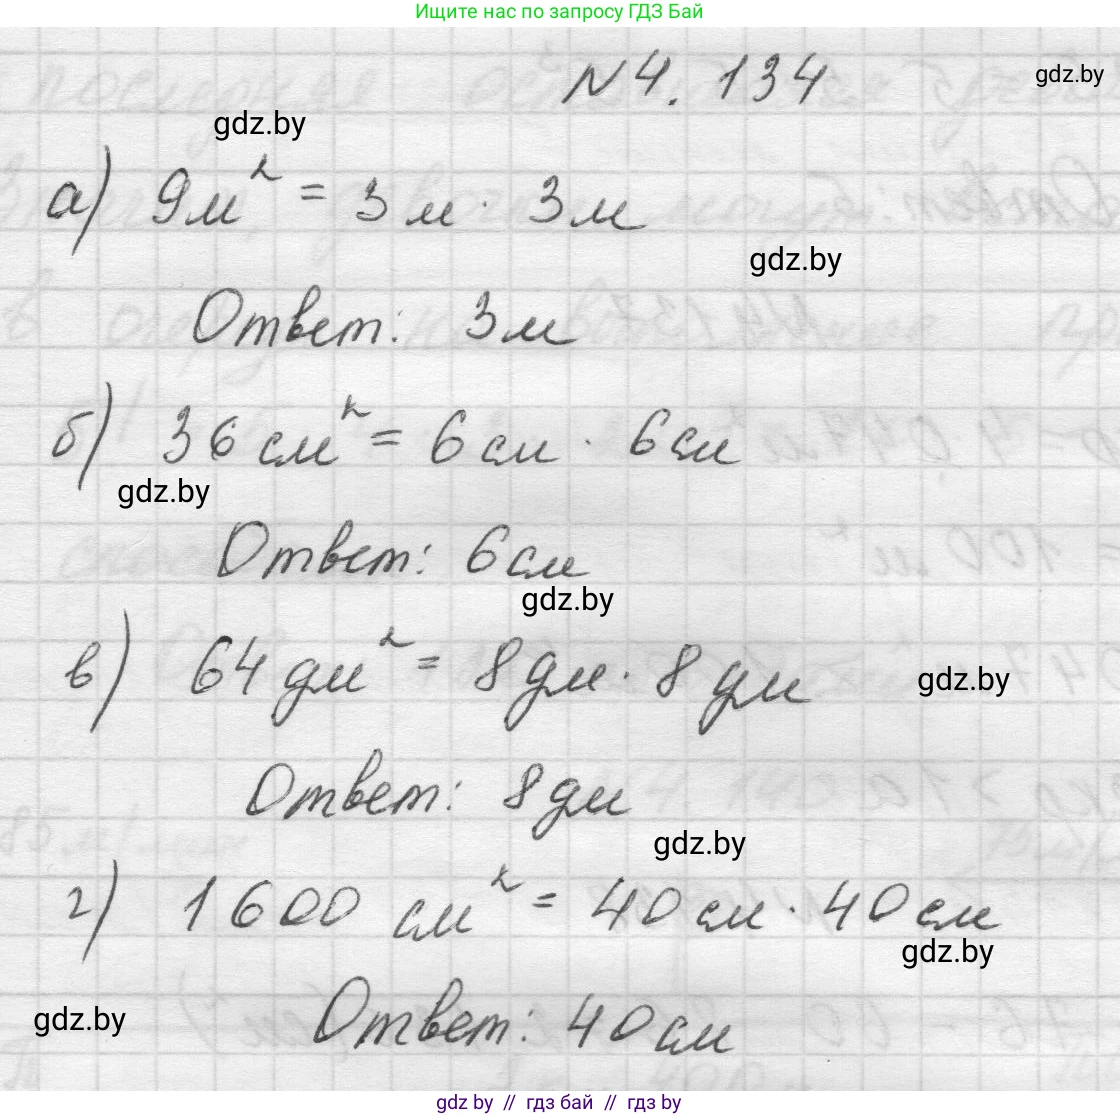 Ищите нас по запросу ГДЗ Бай
N 4. 134
gdz.by
gdz.by
а) 9м² = 3м · 3м
gdz.by
Ответ: 3м
б) 36см² = 6см · 6см
gdz.by
Ответ: 6см
gdz.by
в) 64дм² = 8дм · 8дм
gdz.by
Ответ: 8дм
gdz.by
г) 1600 см² = 40см · 40см
gdz.by
gdz.by
Ответ: 40см
gdz.by // гдз бай // гдз by